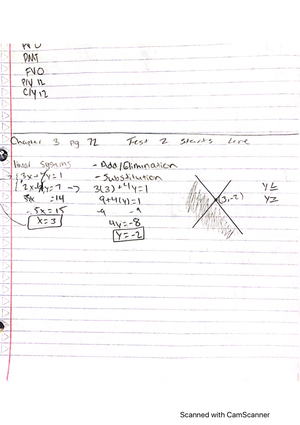 PMT
FVO
P/Y 12
C/Y 12
Chapter 3 pg 72 Test 2 starts here
Linear Systems - Add/Elimination
- Substitution
3(3)+4y=1
=14 9+4(y)=1
-5x=15 -9 -9
x=3 4y=-8
y=-2
(3,-2)
y≤
y≥
Scanned with CamScanner